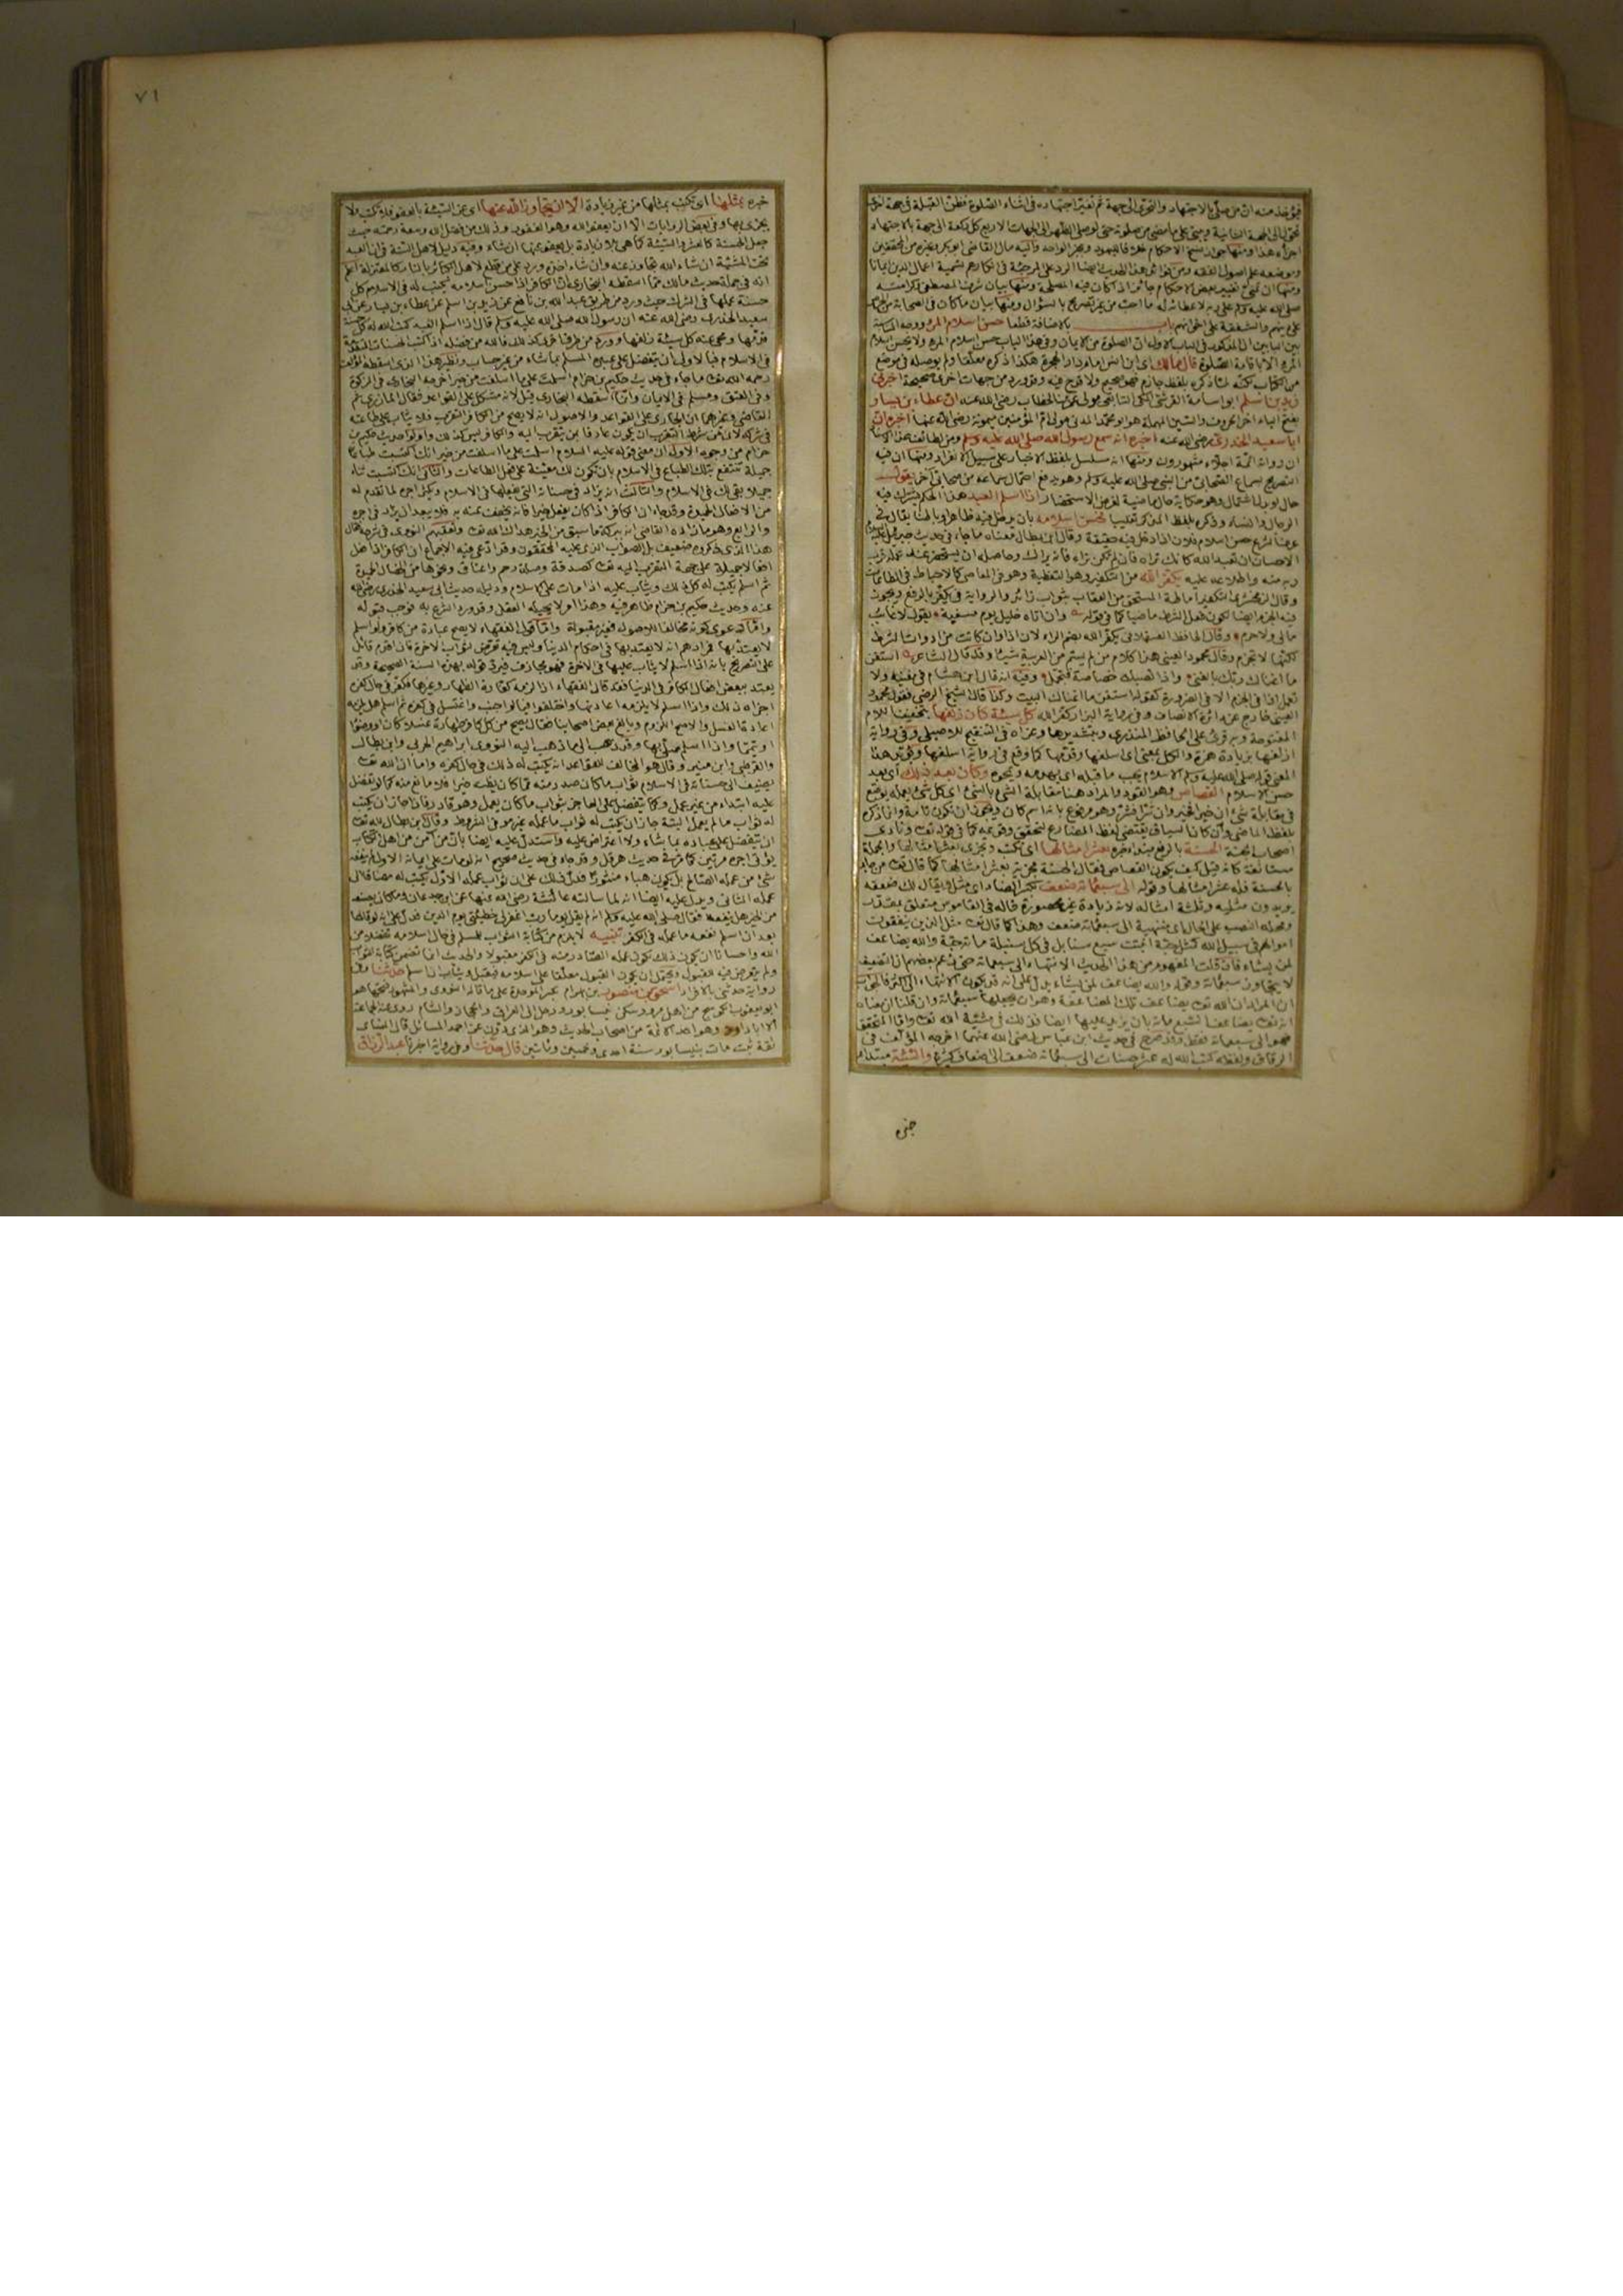 فيؤخذ منه ان من صلى بالاجتهاد والتحرى الى جهة ثم تغير اجتهاده فى اثناء الصلوة فظن القبلة فى جهة اخرى
يتحول الى الجهة الثانية ويبنى على ما مضى من صلوته حتى لو صلى الظهر الى الجهات الاربع كل ركعة الى جهة بالاجتهاد
اجزأه هذا ومنها جواز نسخ الاحكام خلافا لليهود وبخبر الواحد واليه مال القاضى ابو بكر وغيره من المحققين
وموضعه علم اصول الفقه ومن فوائد هذا الحديث ايضا الرد على المرجئة فى انكارهم تسمية اعمال الدين ايمانا
ومنها ان تمنى تغيير بعض الاحكام جائز اذا كان فيه المصلحة ومنها بيان شرف المصطفى وكرامته
صلى الله عليه وسلم على ربه لاعطائه له ما احب من غير تصريح بالسؤال ومنها بيان ما كان فى الصحابة من الحرص
على دينهم والشفقة على اخوانهم باب بالاضافة قطعا حسن اسلام المرء ووجه المناسبة
بين البابين ان المذكور فى الباب الاول ان الصلوة من الايمان وفى هذا الباب حسن اسلام المرء ولا يحسن اسلام
المرء الا باقامة الصلوة قال مالك اى ابن انس امام دار الهجرة هكذا ذكره معلقا ولم يوصله فى موضع
من الكتاب لكنه لما ذكره بلفظ جازم فهو صحيح ولا قدح فيه وقد ورد من جهات اخرى صحيحة اخبرنى
زيد بن اسلم ابو اسامة القرشى المكى التابعى مولى عمر بن الخطاب رضى الله عنه ان عطاء بن يسار
بفتح الياء اخر الحروف والسين المهملة هو ابو محمد المدنى مولى ام المؤمنين ميمونة رضى الله عنها اخبره ان
ابا سعيد الخدرى رضى الله عنه اخبره انه سمع رسول الله صلى الله عليه وسلم ومن لطائف هذا الاسناد
ان رواته ائمة اجلاء مشهورون ومنها انه مسلسل بلفظ الاخبار على سبيل الانفراد ومنها ان فيه
التصريح بسماع الصحابى من النبى صلى الله عليه وسلم وهو يدفع احتمال سماعه من صحابى آخر يقول
وهو حكاية حال ماضية لغرض الاستحضار اذا اسلم العبد هذا الحكم يشترك فيه
الرجال والنساء وذكره بلفظ المذكر تغليبا فحسن اسلامه بان يدخل فيه ظاهرا وباطنا يقال فى
عرف الشرع حسن اسلام فلان اذا دخل فيه حقيقة وقال ابن بطال معناه ما جاء فى حديث جبريل عليه السلام
الاحسان ان تعبد الله كانك تراه فان لم تكن تراه فانه يراك وحاصله ان يستحضر عند عمله قرب
ربه منه واطلاعه عليه يكفر الله من التكفير وهو التغطية وهو فى المعاصى كالاحباط فى الطاعات
وقال الزمخشرى التكفير اماطة المستحق من العقاب بثواب زائد والرواية فى يكفر بالرفع ويجوز
فيه الجزم ايضا لكون فعل الشرط ماضيا كما فى قوله وان اتاه خليل يوم مسغبة يقول لا غائب
مالى ولا حرم وقال الحافظ العسقلانى يكفر الله بضم الراء لان اذا وان كانت من ادوات الشرط
لكنها لا تجزم وقال محمود العينى هذا كلام من لم يشم من العربية شيئا وقد قال الشاعر استغن
ما اغناك ربك بالغنى واذا تصبك خصاصة فتجمل وفيه انه قال ابن هشام فى مغنيه ولا
تعمل اذا فى الجزم الا فى الضرورة كقوله استغن ما اغناك البيت وكذا قال الشيخ الرضى فقول محمود
العينى خارج عن دائرة الانصاف وفى رواية البزار كفر الله كل سيئة كان زلفها بتخفيف اللام
المفتوحة وبه قرئ على الحافظ المنذرى وبتشديدها وعزاه فى التنقيح للاصيلى وفى رواية
ازلفها بزيادة همزة والكل بمعنى اى اسلفها وقدمها كما وقع فى رواية اسلفها
المعنى قوله صلى الله عليه وسلم الاسلام يجب ما قبله اى يهدمه ويمحوه وكان بعد ذلك اى بعد
حسن الاسلام القصاص وهو القود والمراد هنا مقابلة الشئ بالشئ اى كل شئ يعمله يوضع
فى مقابلة شئ ان خيرا فخير وان شرا فشر وهو مرفوع بانه اسم كان ويجوز ان تكون تامة وانما ذكره
بلفظ الماضى وان كان السياق يقتضى لفظ المضارع لتحقق وقوعه كما فى قوله تعالى ونادى
اصحاب الجنة الحسنة بالرفع مبتدأ خبره بعشر امثالها اى تكتب وتجزى بعشر امثالها والجملة
مستأنفة كانه قيل كيف يكون القصاص فقال الحسنة مجزية بعشر امثالها كما قال تعالى من جاء
بالحسنة فله عشر امثالها وقوله الى سبعمائة ضعف بكسر الضاد اى مثل ويقال لك ضعفه
يريدون مثليه وثلثة امثاله لانه زيادة غير محصورة قاله فى القاموس متعلق بمقدر
ومحله النصب على الحال اى منتهية الى سبعمائة ضعف وهذا كما قال تعالى مثل الذين ينفقون
اموالهم فى سبيل الله كمثل حبة انبتت سبع سنابل فى كل سنبلة مائة حبة والله يضاعف
لمن يشاء فان قلت المفهوم من هذا الحديث الانتهاء الى سبعمائة حتى زعم بعضهم ان التضعيف
لا يتجاوز سبعمائة وقوله والله يضاعف لمن يشاء يدل على انه قد يكون الانتهاء الى اكثر فالجواب
ان المراد ان الله تعالى يضاعف تلك المضاعفة وهو ان يجعلها سبعمائة وان قلنا ان معناه
انه تعالى يضاعف السبعمائة بان يزيد عليها ايضا فذلك فى مشيئة الله تعالى واما المتحقق
فهو الى سبعمائة فقط وقد صرح فى حديث ابن عباس رضى الله عنهما اخرجه المؤلف فى
الرقاق ولفظه كتب الله له عشر حسنات الى سبعمائة ضعف الى اضعاف كثيرة والسيئة مبتدأ
خبره
٧١
خبره بمثلها اى تكتب بمثلها من غير زيادة الا ان يتجاوز الله عنها اى عن السيئة بالعفو فلا تكتب ولا
يجزى بها وفى بعض الروايات الا ان يعفو الله وهو الغفور وذلك من فضل الله وسعة رحمته حيث
جعل الحسنة كالعشر والسيئة كما هى بلا زيادة بل يعفو عنها ان شاء وفيه دليل لاهل السنة فى ان العبد
تحت المشيئة ان شاء الله تجاوز عنه وان شاء اخذه ورد على من قطع لاهل الكبائر بالنار كالمعتزلة اعلم
انه فى جملة حديث مالك مما اسقطه البخارى ان الكافر اذا حسن اسلامه يكتب له فى الاسلام كل
حسنة عملها فى الشرك حيث ورد من طريق عبد الله بن نافع عن زيد بن اسلم عن عطاء بن يسار عن ابى
سعيد الخدرى رضى الله عنه ان رسول الله صلى الله عليه وسلم قال اذا اسلم العبد كتب الله له كل حسنة
قدمها ومحى عنه كل سيئة زلفها وورد من طرق اخرى كذلك فالله من فضله اذا كتب الحسنات المتقدمة
فى الاسلام فبالاولى ان يتفضل على عبده المسلم بما شاء من غير حساب ونظير هذا الذى اسقطه المؤلف
رحمه الله تعالى ما جاء فى حديث حكيم بن حزام اسلمت على ما اسلفت من خير اخرجه البخارى فى الزكوة
وفى العتق ومسلم فى الايمان وانما اسقطه البخارى قيل لانه مشكل على القواعد فقال المازرى ثم
القاضى وغيرهما ان الجارى على القواعد والاصول انه لا يصح من الكافر التقرب فلا يثاب على طاعته
فى شركه لان من شرط التقرب ان يكون عارفا بمن يتقرب اليه والكافر ليس كذلك واولوا حديث حكيم بن
حزام من وجوه الاول ان معنى قوله عليه السلام اسلمت على ما اسلفت من خير انك اكتسبت طباعا
جميلة تنتفع بتلك الطباع فى الاسلام بان تكون لك معينة على فعل الطاعات والثانى انك اكتسبت ثناء
جميلا بقى لك فى الاسلام والثالث انه يزاد فى حسناته التى يفعلها فى الاسلام ويكثر اجره لما تقدم له
من الافعال الحميدة وقد جاء ان الكافر اذا كان يفعل خيرا فانه يخفف عنه به فلا يبعد ان يزاد فى اجره
والرابع وهو ما زاده القاضى انه ببركة ما سبق من الخير هداك الله تعالى وتعقبهم النووى فى شرحه فقال
هذا الذى ذكروه ضعيف بل الصواب الذى عليه المحققون وقد ادعى فيه الاجماع ان الكافر اذا فعل
افعالا جميلة على جهة التقرب اليه تعالى كصدقة وصلة رحم واعتاق ونحوها من الخصال الحميدة
ثم اسلم يكتب له كل ذلك ويثاب عليه اذا مات على الاسلام ودليله حديث ابى سعيد الخدرى رضى الله
عنه وحديث حكيم بن حزام ظاهر فيه وهذا امر لا يحيله العقل وقد ورد الشرع به فوجب قبوله
واما دعوى كونه مخالفا للاصول فغير مقبولة واما قول الفقهاء لا يصح عبادة من كافر ولو اسلم
لا يعتد بها فمرادهم انه لا يعتد بها فى احكام الدنيا وليس فيه تعرض لثواب الاخرة فان اقدم قائل
على التصريح بانه اذا اسلم لا يثاب عليها فى الاخرة فهو مجازف فيرد قوله بهذه السنة الصحيحة وقد
يعتد ببعض افعال الكافر فى الدنيا فقد قال الفقهاء اذا لزمه كفارة الظهار وغيرها فكفر فى حال كفره
اجزأه ذلك واذا اسلم لا يلزمه اعادتها واختلفوا فيما لو اجنب واغتسل فى كفره ثم اسلم هل يلزمه
اعادة الغسل والاصح اللزوم وبالغ بعض اصحابنا فقال يصح من كل كافر طهارة غسلا كان او وضوءا
او تيمما واذا اسلم صلى بها وقد ذهب الى ما ذهب اليه النووى ابراهيم الحربى وابن بطال
والقرطبى وابن منير وقال هو المخالف للقواعد انه يكتب له ذلك فى حال كفره واما ان الله تعالى
يضيف الى حسناته فى الاسلام ثواب ما كان صدر منه مما كان يظنه خيرا فلا مانع منه كما لو تفضل
عليه ابتداء من غير عمل وكما يتفضل على العاجز بثواب ما كان يعمل وهو قادر فاذا جاز ان يكتب
له ثواب ما لم يعمل البتة جاز ان يكتب له ثواب ما عمله غير موفى الشروط وقال ابن بطال لله تعالى
ان يتفضل على عباده بما شاء ولا اعتراض عليه واستدل عليه ايضا بان من آمن من اهل الكتاب
يؤتى اجره مرتين كما مر فى حديث هرقل وقد جاء فى حديث صحيح انه لو مات على ايمانه الاول لم ينفعه
شئ من عمله الصالح بل يكون هباء منثورا فدل ذلك على ان ثواب عمله الاول يكتب له مضافا الى
عمله الثانى ويدل عليه ايضا انه لما سالته عائشة رضى الله عنها عن ابن جدعان وما كان يصنعه
من الخير هل ينفعه فقال صلى الله عليه وسلم انه لم يقل يوما رب اغفر لى خطيئتى يوم الدين فدل على انه لو قالها
بعد ان اسلم نفعه ما عمله فى الكفر تنبيه لا يلزم من كتابة الثواب للمسلم فى حال اسلامه تفضلا من
الله واحسانا ان يكون ذلك لكون عمله الصادر منه فى الكفر مقبولا والحديث انما تضمن كتابة الثواب
ولم يتعرض فيه للقبول ويحتمل ان يكون القبول معلقا على اسلامه فيقبل ويثاب ان اسلم حدثنا وفى
رواية حدثنى بالافراد اسحق بن منصور بن بهرام بكسر الموحدة على ما قاله النووى والمشهور فتحها هو
ابو يعقوب الكوسج من اهل مرو وسكن نيسابور ورحل الى العراق والحجاز والشام روى عنه الجماعة
الا ابا داود وهو احد الائمة من اصحاب الحديث وهو الذى دون عن احمد المسائل قال النسائى
ثقة ثبت مات بنيسابور سنة احدى وخمسين ومائتين قال حدثنا وفى رواية اخبرنا عبد الرزاق